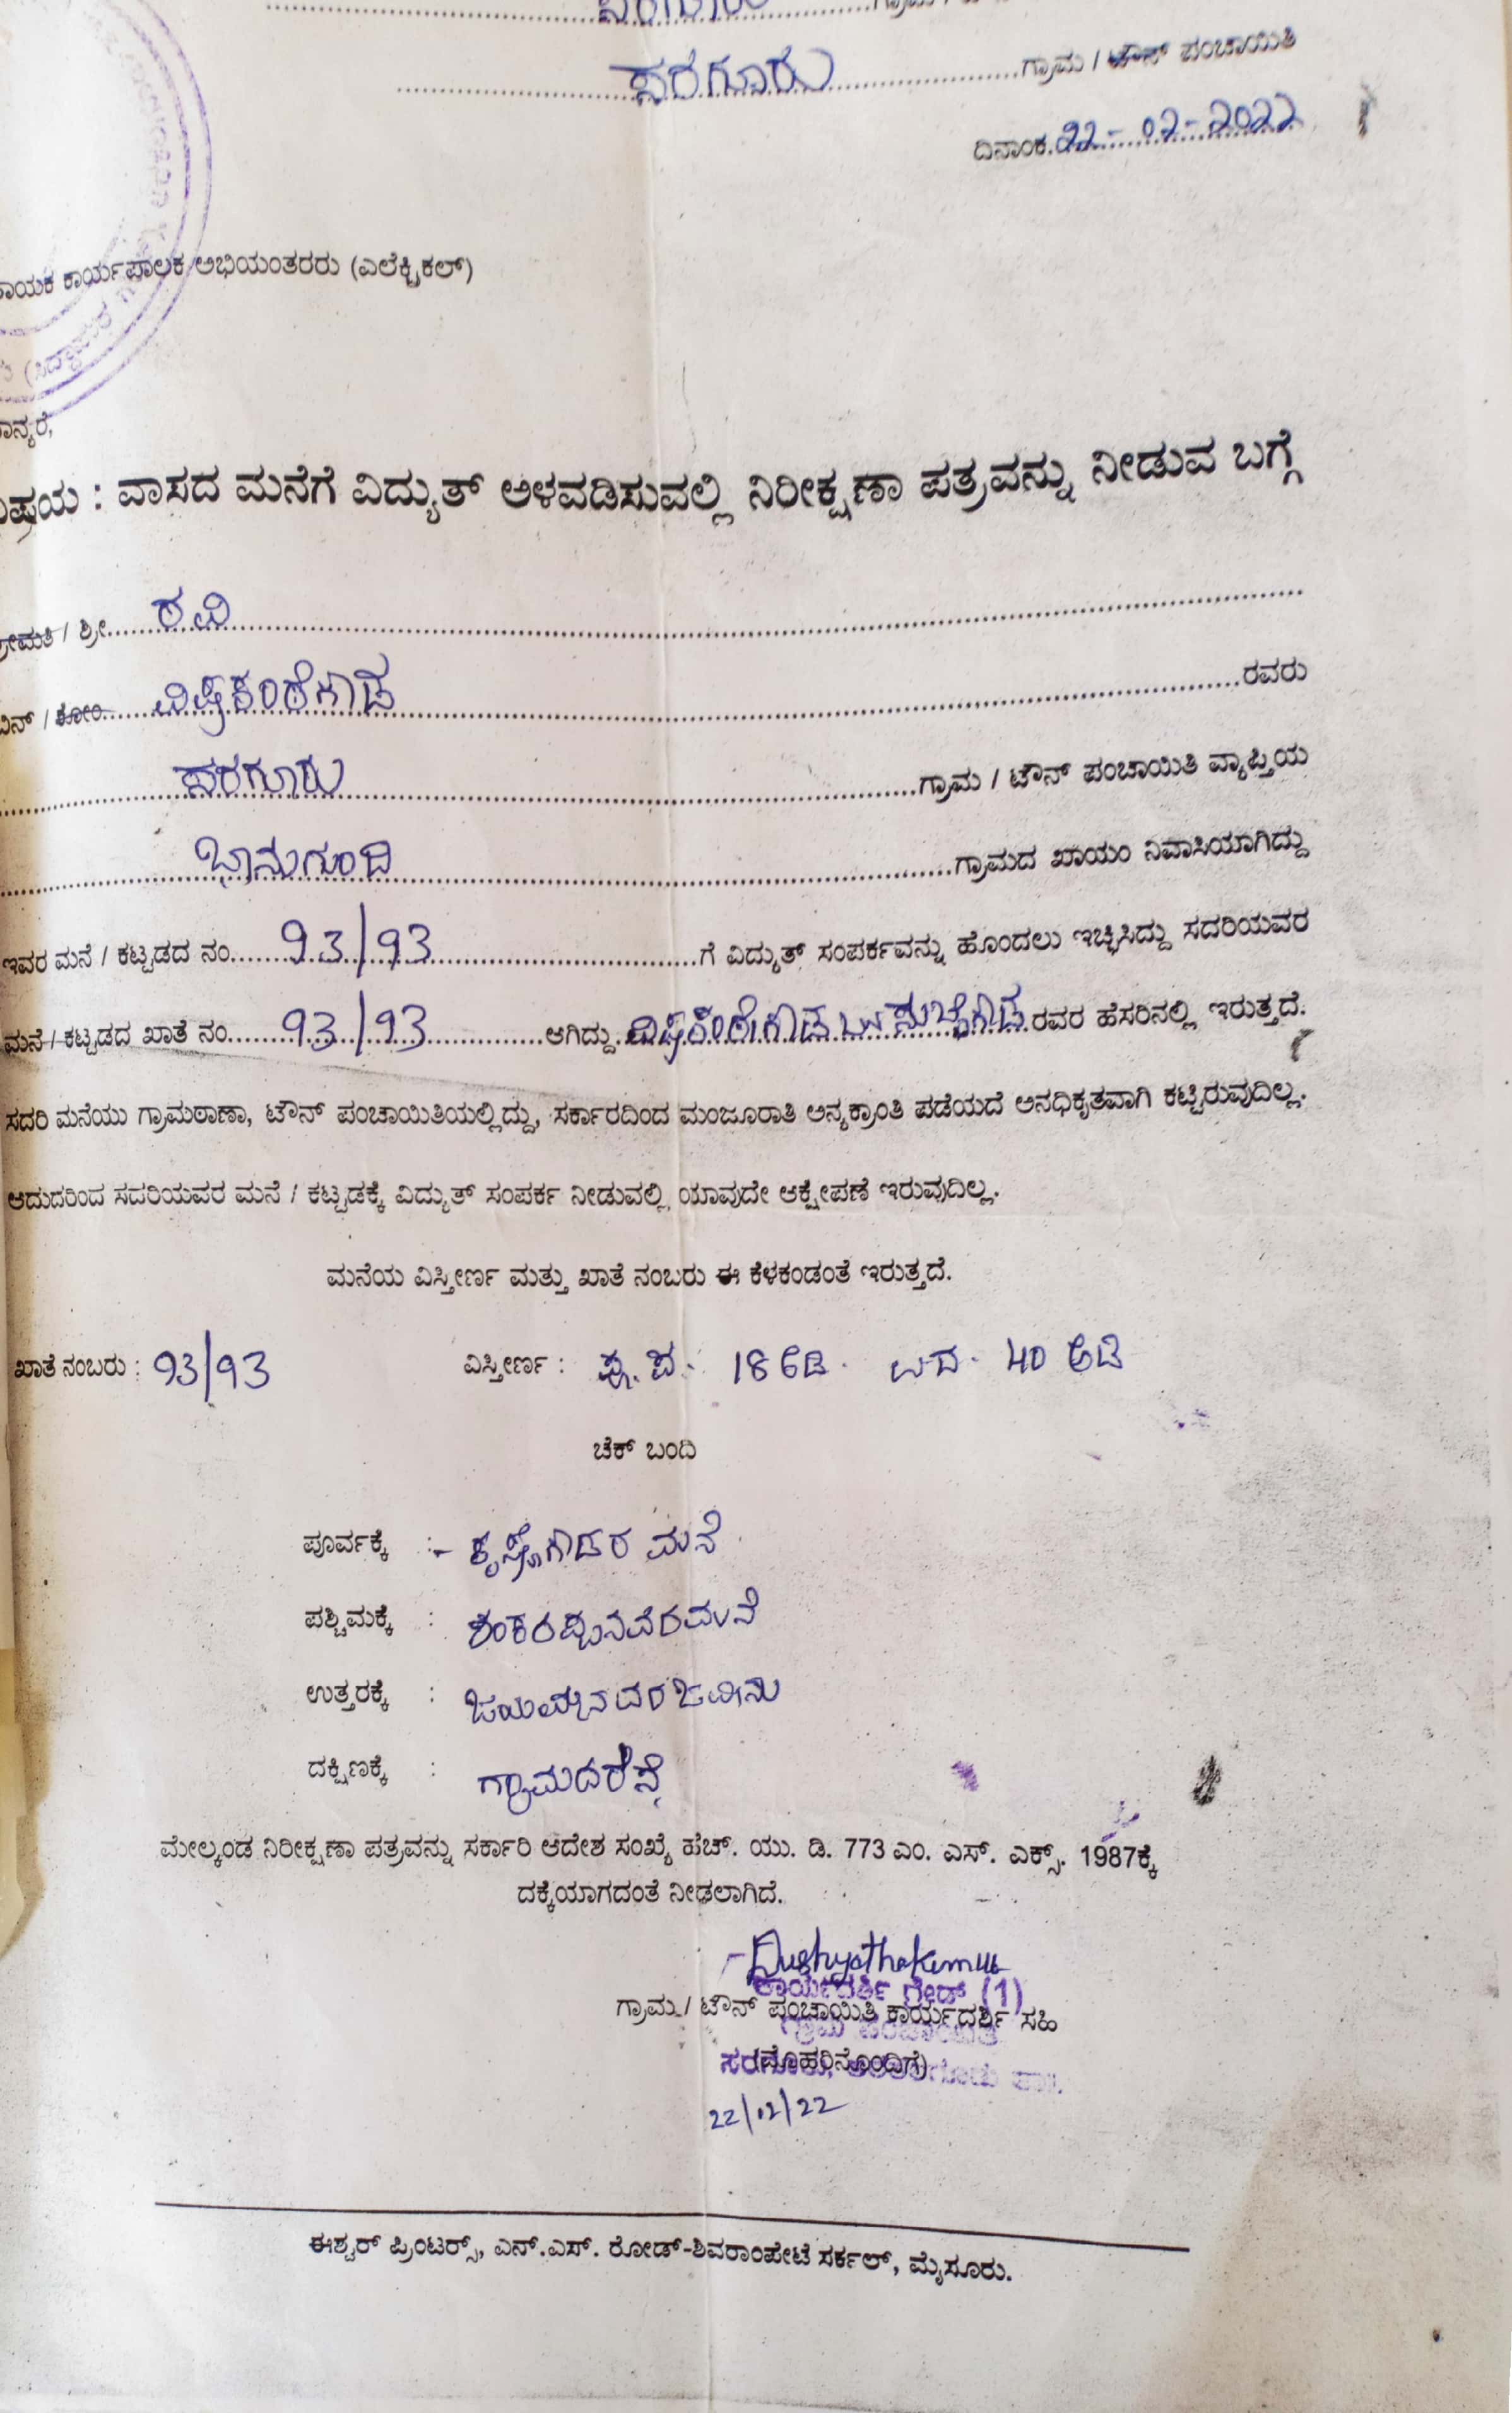 ಸರಗೂರು ಗ್ರಾಮ / ಟೌನ್ ಪಂಚಾಯಿತಿ
ದಿನಾಂಕ. 22-02-2022
ಕಾರ್ಯಪಾಲಕ ಅಭಿಯಂತರರು (ಎಲೆಕ್ಟ್ರಿಕಲ್)
ವಿಷಯ : ವಾಸದ ಮನೆಗೆ ವಿದ್ಯುತ್ ಅಳವಡಿಸುವಲ್ಲಿ ನಿರೀಕ್ಷಣಾ ಪತ್ರವನ್ನು ನೀಡುವ ಬಗ್ಗೆ
/ ಶ್ರೀ ರವಿ
/ ಕೋಂ ವಿಷಕಂಠೆಗೌಡ ರವರು
ಸರಗೂರು ಗ್ರಾಮ / ಟೌನ್ ಪಂಚಾಯಿತಿ ವ್ಯಾಪ್ತಿಯ
ಭಾನುಗುಂದಿ ಗ್ರಾಮದ ಖಾಯಂ ನಿವಾಸಿಯಾಗಿದ್ದು
ಇವರ ಮನೆ / ಕಟ್ಟಡದ ನಂ 93/93 ಗೆ ವಿದ್ಯುತ್ ಸಂಪರ್ಕವನ್ನು ಹೊಂದಲು ಇಚ್ಛಿಸಿದ್ದು ಸದರಿಯವರ
ಮನೆ / ಕಟ್ಟಡದ ಖಾತೆ ನಂ 93/93 ಆಗಿದ್ದು ವಿಷಕಂಠೇಗೌಡ ರವರ ಹೆಸರಿನಲ್ಲಿ ಇರುತ್ತದೆ.
ಸದರಿ ಮನೆಯು ಗ್ರಾಮಠಾಣಾ, ಟೌನ್ ಪಂಚಾಯಿತಿಯಲ್ಲಿದ್ದು, ಸರ್ಕಾರದಿಂದ ಮಂಜೂರಾತಿ ಅನ್ಯಕ್ರಾಂತಿ ಪಡೆಯದೆ ಅನಧಿಕೃತವಾಗಿ ಕಟ್ಟಿರುವುದಿಲ್ಲ.
ಆದುದರಿಂದ ಸದರಿಯವರ ಮನೆ / ಕಟ್ಟಡಕ್ಕೆ ವಿದ್ಯುತ್ ಸಂಪರ್ಕ ನೀಡುವಲ್ಲಿ ಯಾವುದೇ ಆಕ್ಷೇಪಣೆ ಇರುವುದಿಲ್ಲ.
ಮನೆಯ ವಿಸ್ತೀರ್ಣ ಮತ್ತು ಖಾತೆ ನಂಬರು ಈ ಕೆಳಕಂಡಂತೆ ಇರುತ್ತದೆ.
ಖಾತೆ ನಂಬರು : 93/93 ವಿಸ್ತೀರ್ಣ : ಪೂ.ಪ. 18 ಅಡಿ. ಉ.ದ. 40 ಅಡಿ
ಚೆಕ್ ಬಂದಿ
ಪೂರ್ವಕ್ಕೆ :- ಕೃಷ್ಣೇಗೌಡರ ಮನೆ
ಪಶ್ಚಿಮಕ್ಕೆ : ಶಂಕರಪ್ಪನವರಮನೆ
ಉತ್ತರಕ್ಕೆ : ಜಯಮ್ಮನವರಜಮೀನು
ದಕ್ಷಿಣಕ್ಕೆ : ಗ್ರಾಮದರಸ್ತೆ
ಮೇಲ್ಕಂಡ ನಿರೀಕ್ಷಣಾ ಪತ್ರವನ್ನು ಸರ್ಕಾರಿ ಆದೇಶ ಸಂಖ್ಯೆ ಹೆಚ್. ಯು. ಡಿ. 773 ಎಂ. ಎಸ್. ಎಕ್ಸ್. 1987ಕ್ಕೆ
ದಕ್ಕೆಯಾಗದಂತೆ ನೀಡಲಾಗಿದೆ.
ಕಾರ್ಯದರ್ಶಿ ಗ್ರೇಡ್ (1)
ಗ್ರಾಮ / ಟೌನ್ ಪಂಚಾಯಿತಿ ಕಾರ್ಯದರ್ಶಿ ಸಹಿ
(ಮೊಹರಿನೊಂದಿಗೆ)
22/12/22
ಈಶ್ವರ್ ಪ್ರಿಂಟರ್ಸ್, ಎನ್.ಎಸ್. ರೋಡ್-ಶಿವರಾಂಪೇಟೆ ಸರ್ಕಲ್, ಮೈಸೂರು.